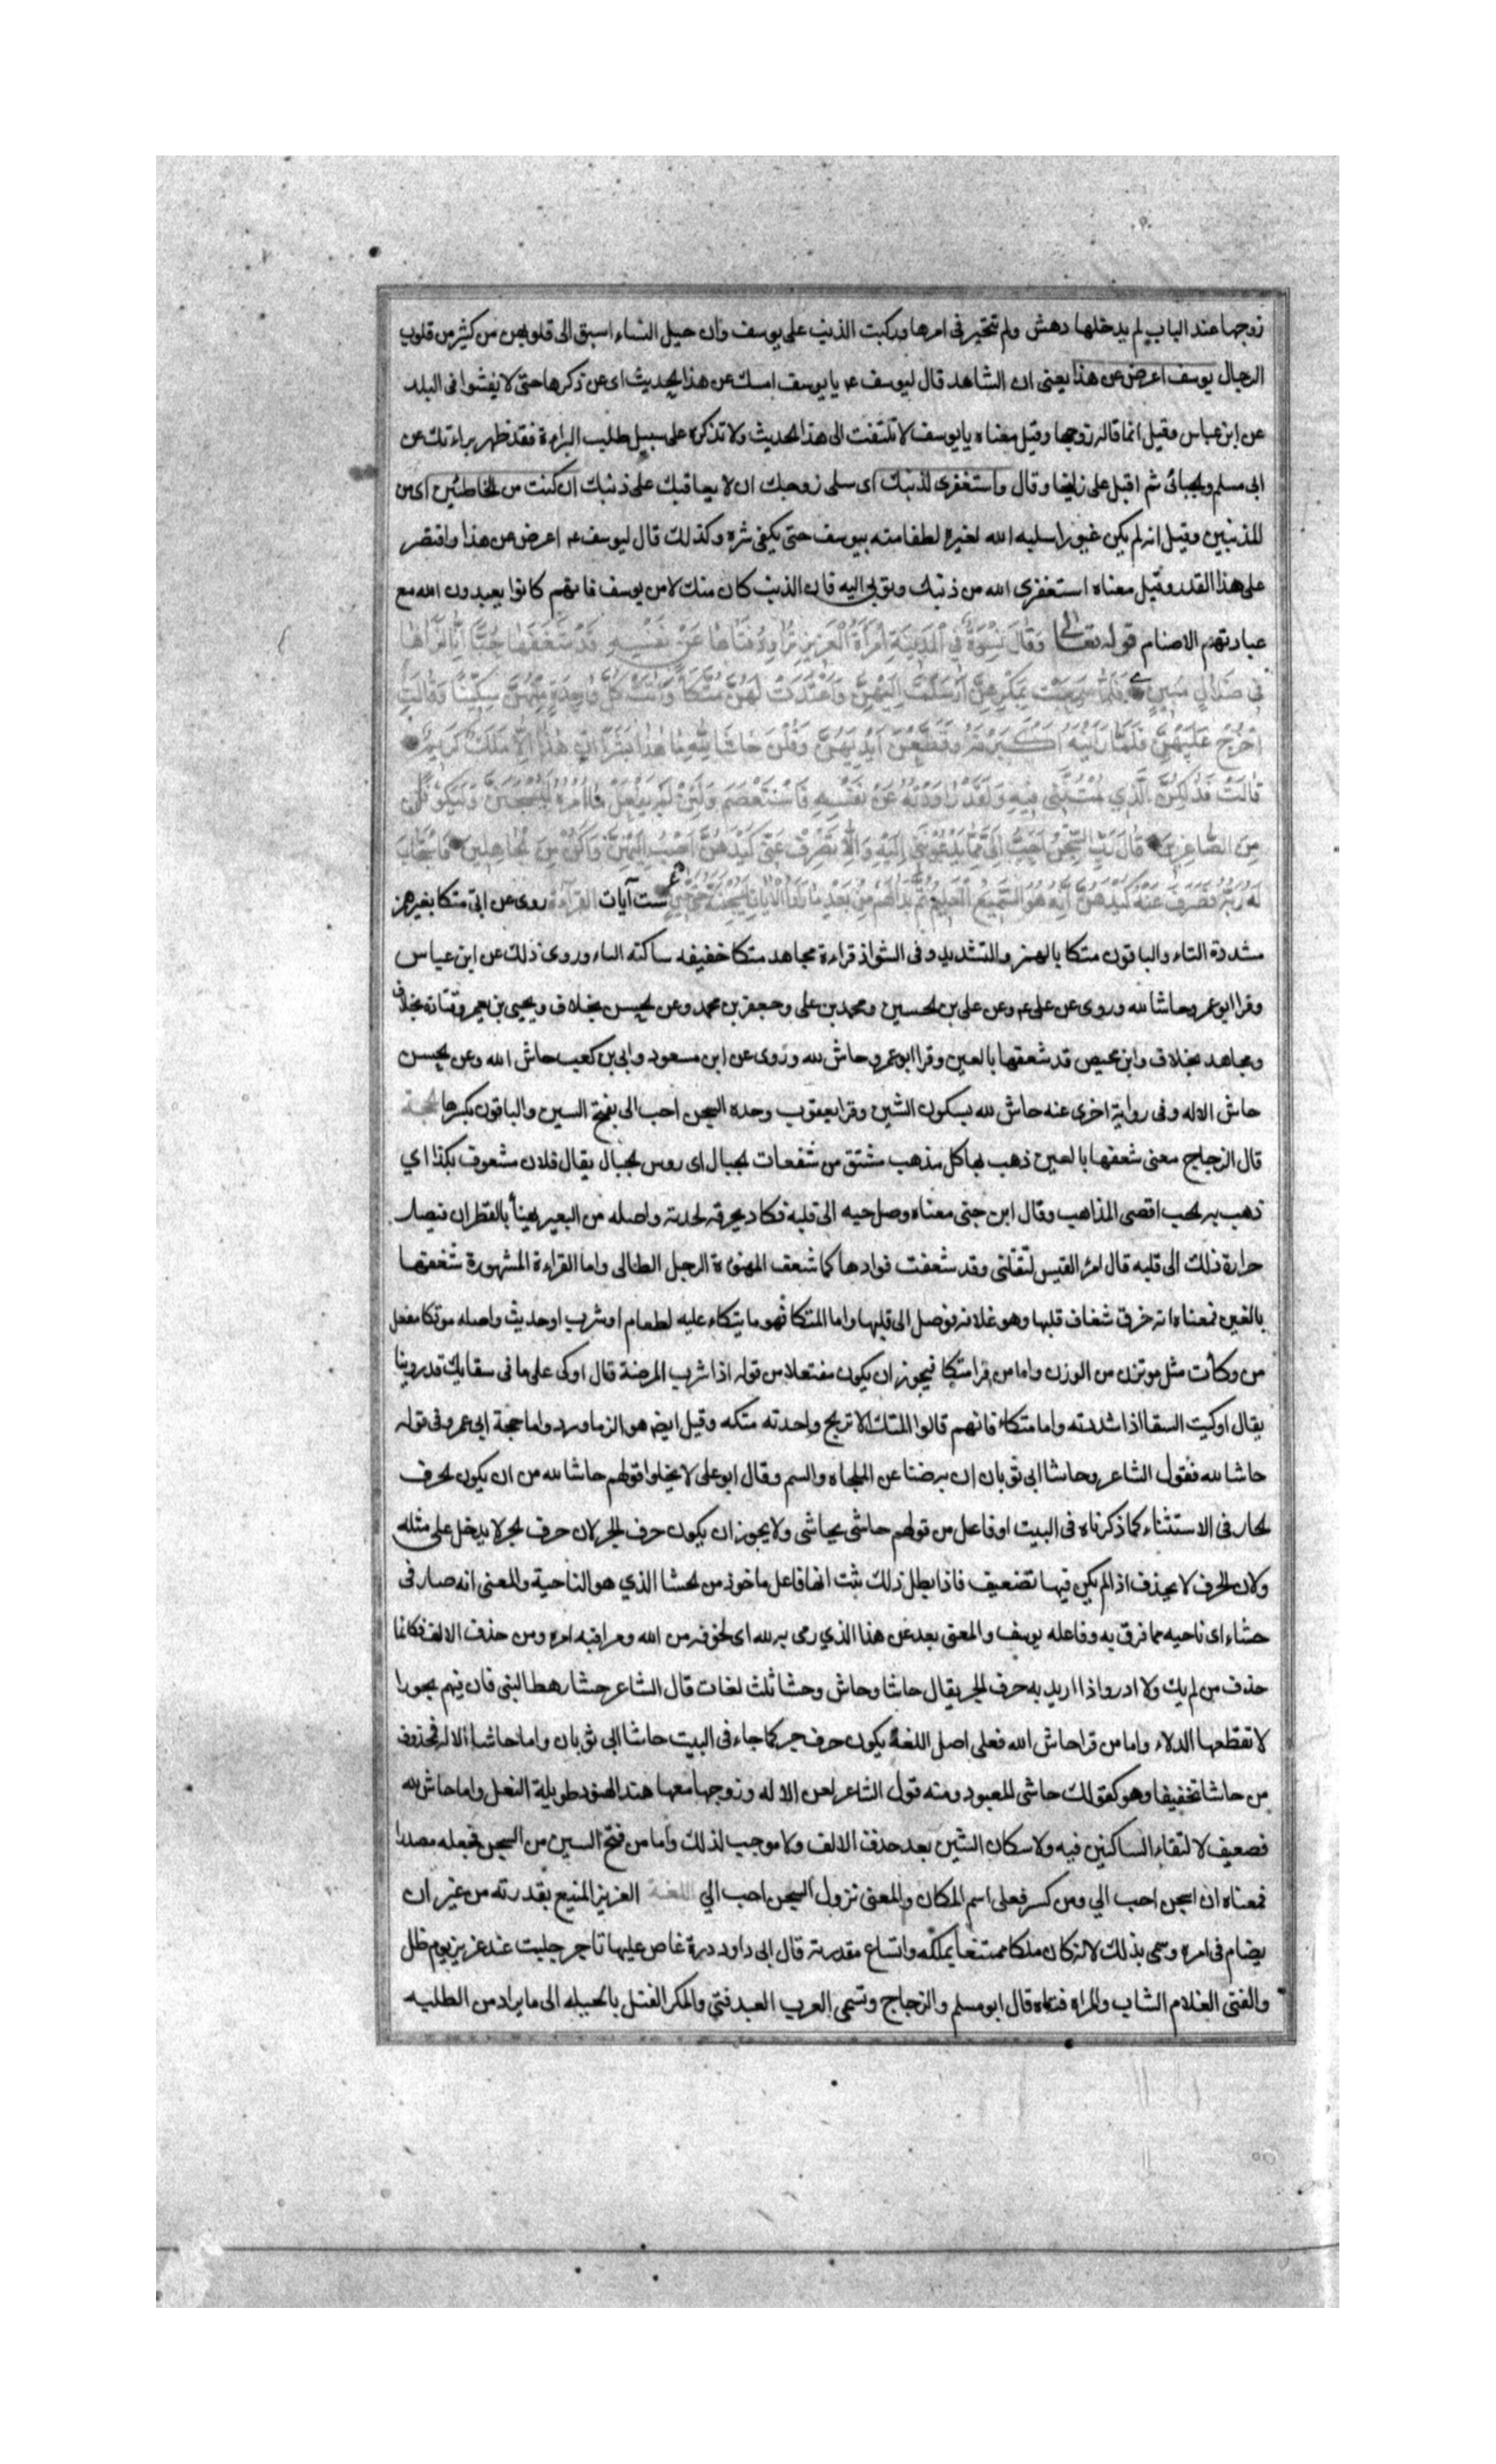 زوجها عند الباب لم يدخلها دهش ولم تتحير فى امرها وركبت الذنب على يوسف وان حيل النساء اسبق الى قلوبهن من كثير من قلوب
الرجال يوسف اعرض عن هذا يعنى ان الشاهد قال ليوسف عم يا يوسف امسك عن هذا الحديث اى عن ذكرها حتى لا يفشوا فى البلد
عن ابن عباس وقيل انما قاله زوجها وقيل معناه يا يوسف لا تلتفت الى هذا الحديث ولا تذكره على سبيل طلب البراءة فقد ظهر براءتك عن
ابى مسلم والجبائى ثم اقبل على زليخا وقال واستغفرى لذنبك اى سلى زوجك ان لا يعاقبك على ذنبك ان كنت من الخاطئين اى من
المذنبين وقيل انه لم يكن غيورا سلبه الله الغيرة لطفا منه بيوسف حتى يكفى شره وكذلك قال ليوسف عم اعرض عن هذا واقتصر
على هذا القدر وقيل معناه استغفرى الله من ذنبك وتوبى اليه فان الذنب كان منك لا من يوسف فانهم كانوا يعبدون الله مع
عبادتهم الاصنام قوله تعالى وَقَالَ نِسْوَةٌ فِي الْمَدِينَةِ امْرَأَةُ الْعَزِيزِ تُرَاوِدُ فَتَاهَا عَنْ نَفْسِهِ قَدْ شَغَفَهَا حُبًّا إِنَّا لَنَرَاهَا
فِي ضَلَالٍ مُبِينٍ فَلَمَّا سَمِعَتْ بِمَكْرِهِنَّ أَرْسَلَتْ إِلَيْهِنَّ وَأَعْتَدَتْ لَهُنَّ مُتَّكَأً وَآتَتْ كُلَّ وَاحِدَةٍ مِنْهُنَّ سِكِّينًا وَقَالَتِ
اخْرُجْ عَلَيْهِنَّ فَلَمَّا رَأَيْنَهُ أَكْبَرْنَهُ وَقَطَّعْنَ أَيْدِيَهُنَّ وَقُلْنَ حَاشَا لِلَّهِ مَا هَذَا بَشَرًا إِنْ هَذَا إِلَّا مَلَكٌ كَرِيمٌ
قَالَتْ فَذَلِكُنَّ الَّذِي لُمْتُنَّنِي فِيهِ وَلَقَدْ رَاوَدْتُهُ عَنْ نَفْسِهِ فَاسْتَعْصَمَ وَلَئِنْ لَمْ يَفْعَلْ مَا آمُرُهُ لَيُسْجَنَنَّ وَلَيَكُونًا
مِنَ الصَّاغِرِينَ قَالَ رَبِّ السِّجْنُ أَحَبُّ إِلَيَّ مِمَّا يَدْعُونَنِي إِلَيْهِ وَإِلَّا تَصْرِفْ عَنِّي كَيْدَهُنَّ أَصْبُ إِلَيْهِنَّ وَأَكُنْ مِنَ الْجَاهِلِينَ فَاسْتَجَابَ
لَهُ رَبُّهُ فَصَرَفَ عَنْهُ كَيْدَهُنَّ إِنَّهُ هُوَ السَّمِيعُ الْعَلِيمُ ثُمَّ بَدَا لَهُمْ مِنْ بَعْدِ مَا رَأَوُا الْآيَاتِ لَيَسْجُنُنَّهُ حَتَّى حِينٍ ست آيات القراءة روى عن ابى متكا بغير همز
مشددة التاء والباقون متكا بالهمز والتشديد وفى الشواذ قراءة مجاهد متكا خفيفه ساكنه التاء وروى ذلك عن ابن عباس
وقرا ابو عمرو حاشا لله وروى عن على عم وعن على بن الحسين ومحمد بن على وجعفر بن محمد وعن الحسن بخلاف ويحيى بن يعمر وقتادة بخلاف
ومجاهد بخلاف وابن محيص قد شعفها بالعين وقرا ابو عمرو حاش لله وروى عن ابن مسعود وابى بن كعب حاش الله وعن الحسن
حاش الاله وفى رواية اخرى عنه حاش لله بسكون الشين وقرا يعقوب وحده السجن احب الى بفتح السين والباقون بكسرها الحجة
قال الزجاج معنى شعفها بالعين ذهب بها كل مذهب مشتق من شعفات الجبال اى روس الجبال يقال فلان مشعوف بكذا اي
ذهب به الحب اقصى المذاهب وقال ابن جنى معناه وصل حبه الى قلبه فكاد يحرقه لحدته واصله من البعير يهنأ بالقطران فيصل
حرارة ذلك الى قلبه قال امرؤ القيس لتقتلنى وقد شعفت فوادها كما شعف المهنوءة الرجل الطالى واما القراءة المشهورة شغفها
بالغين فمعناه انه خرق شغاف قلبها وهو غلافه فوصل الى قلبها واما المتكا فهو ما يتكاء عليه لطعام او شرب او حديث واصله موتكا مفعل
من وكأت مثل موتزن من الوزن واما من قرا متكا فيجوز ان يكون مفتعلا من قوله
يقال اوكيت السقا اذا شددته واما متكا فانهم قالوا المتك الاترج واحدته متكه وقيل ايض هو الزماورد واما حجة ابى عمرو فى قوله
حاشا لله فقول الشاعر حاشا ابى ثوبان ان به ضنا عن الملحاه والشتم وقال ابو على لا يخلوا قولهم حاشا لله من ان يكون الحرف
الجار فى الاستثناء كما ذكرناه فى البيت او فاعل من قولهم حاشى يحاشى ولا يجوز ان يكون حرف الجر لان حرف الجر لا يدخل على مثله
ولان الحرف لا يحذف اذا لم يكن فيها تضعيف فاذا بطل ذلك ثبت انها فاعل ماخوذ من الحشا الذي هو الناحية والمعنى انه صار فى
حشاء اى ناحيه مما قرف به وفاعله يوسف والمعنى بعد عن هذا الذي رمى به لله اى لخوفه من الله ومراقبه امره ومن حذف الالف فكانما
حذف من لم يك ولا ادر واذا اريد به حرف الجر يقال حاشا وحاش وحشا ثلث لغات قال الشاعر حشا رهط النبى فان فيهم بحورا
لا تقطعها الدلاء واما من قرا حاش الله فعلى اصل اللغة يكون حرف جر كما جاء فى البيت حاشا ابى ثوبان واما حاشا الاله فمحذوف
من حاشا تخفيفا وهو كقولك حاشى المعبود ومنه قول الشاعر لعن الاله وزوجها معها هند الهنود طويلة الفعل واما حاش لله
فضعيف لالتقاء الساكنين فيه ولاسكان الشين بعد حذف الالف ولا موجب لذلك واما من فتح السين من السجن فجعله مصدرا
فمعناه ان اسجن احب الي ومن كسر فعلى اسم المكان والمعنى نزول السجن احب الي اللغة العزيز المنيع بقدرته من غير ان
يضام فى امره وسمى بذلك لانه كان ملكا ممتنعا بملكه واتساع مقدرته قال ابى داود درة غاص عليها تاجر جلبت عند عزيز يوم طل
والفتى الغلام الشاب والمراه فتاه قال ابو مسلم والزجاج وتسمى العرب العبد فتى والمكر الفتل بالحيله الى ما يراد من الطلبه